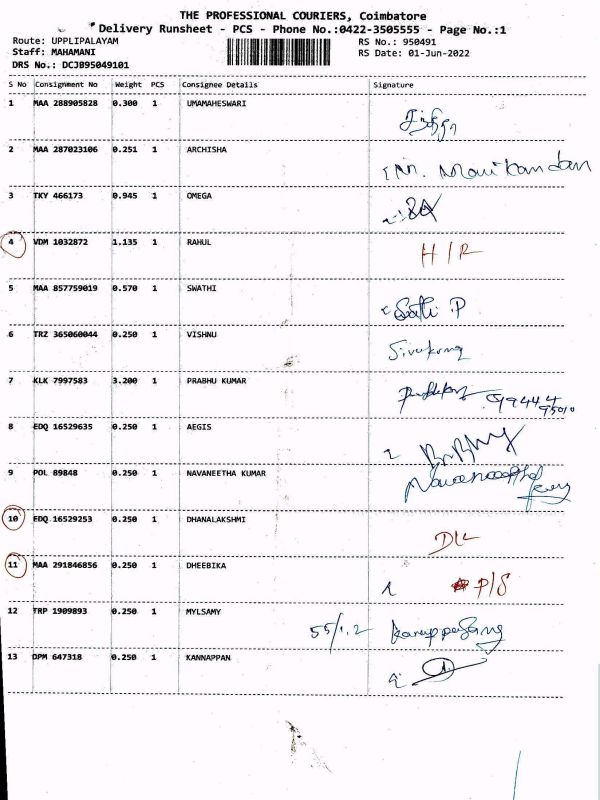 THE PROFESSIONAL COURIERS, Coimbatore
Delivery Runsheet - PCS - Phone No.:0422-3505555 - Page No.:1
Route: UPPLIPALAYAM RS No.: 950491
Staff: MAHAMANI RS Date: 01-Jun-2022
DRS No.: DCJB95049101
S No Consignment No Weight PCS Consignee Details Signature
1 MAA 288905828 0.300 1 UMAMAHESWARI
2 MAA 287023106 0.251 1 ARCHISHA M. Manikandan
3 TKY 466173 0.945 1 OMEGA
4 VDM 1032872 1.135 1 RAHUL H/R
5 MAA 857759019 0.570 1 SWATHI Sathi P
6 TRZ 365060044 0.250 1 VISHNU
7 KLK 7997583 3.200 1 PRABHU KUMAR
8 EDQ 16529635 0.250 1 AEGIS
9 POL 89848 0.250 1 NAVANEETHA KUMAR
10 EDQ 16529253 0.250 1 DHANALAKSHMI D/L
11 MAA 291846856 0.250 1 DHEEBIKA P/S
12 TRP 1909893 0.250 1 MYLSAMY
13 DPM 647318 0.250 1 KANNAPPAN